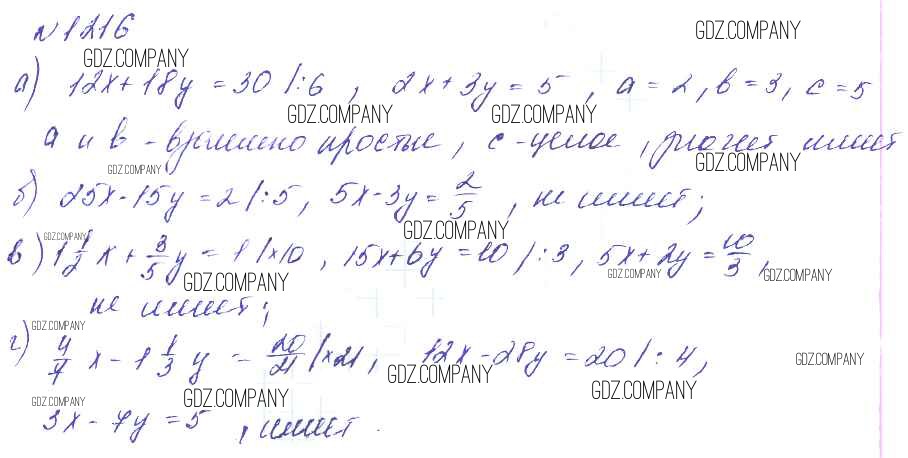 №1216
GDZ.COMPANY
GDZ.COMPANY
а) 12x+18y=30 |:6, 2x+3y=5, a=2, b=3, c=5
GDZ.COMPANY GDZ.COMPANY
a и b - взаимно простые, c - целое, может имеет
GDZ.COMPANY GDZ.COMPANY
б) 25x-15y=2 |:5, 5x-3y=2/5, не имеет;
GDZ.COMPANY GDZ.COMPANY
в) 1 1/2 x + 3/5 y = 1 |×10, 15x+6y=10 |:3, 5x+2y=10/3,
GDZ.COMPANY GDZ.COMPANY GDZ.COMPANY
не имеет;
GDZ.COMPANY
г) 4/7 x - 1 1/3 y = 20/21 |×21, 12x-28y=20 |:4,
GDZ.COMPANY GDZ.COMPANY
GDZ.COMPANY GDZ.COMPANY GDZ.COMPANY
3x-7y=5, имеет.